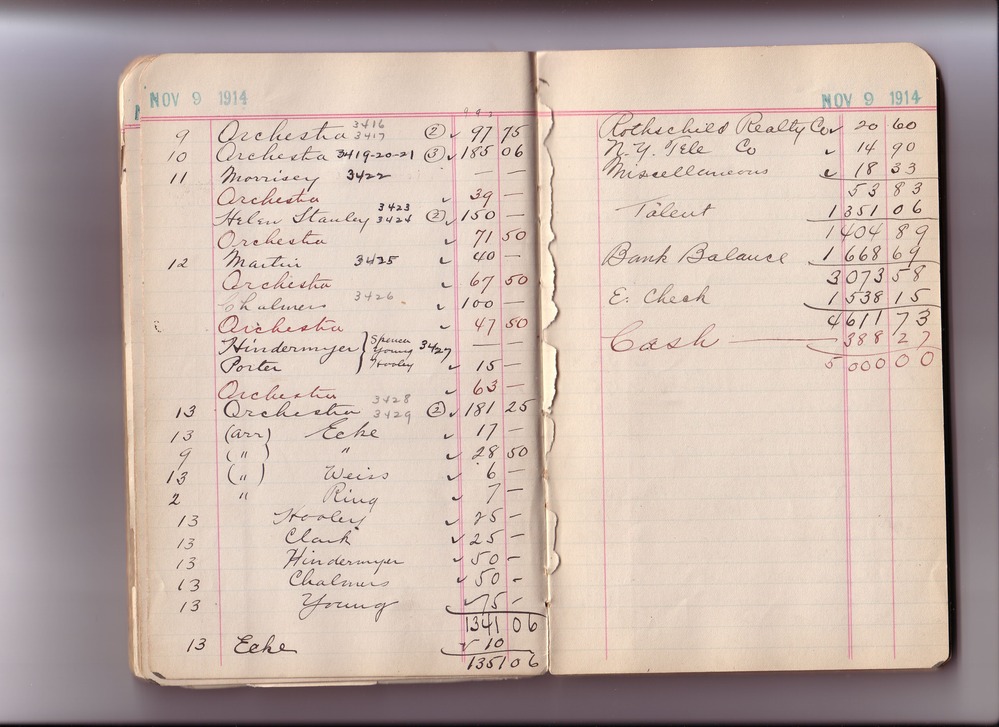 NOV 9 1914
9 Orchestra 3416 3417 ② ✓ 97 75
10 Orchestra 3419-20-21 ③ ✓ 185 06
11 Morrisey 3422 — —
Orchestra ✓ 39 —
Helen Stanley 3423 3424 ② ✓ 150 —
Orchestra ✓ 71 50
12 Martin 3425 ✓ 40 —
Orchestra ✓ 67 50
Chalmers 3426 ✓ 100 —
Orchestra ✓ 47 50
Hindermyer } Spencer Young Hooley 3427 — —
Porter ✓ 15 —
Orchestra ✓ 63 —
13 Orchestra 3428 3429 ② ✓ 181 25
13 (arr) Ecke ✓ 17 —
9 (") " ✓ 28 50
13 (") Weiss ✓ 6 —
2 " Ring ✓ 7 —
13 Hooley ✓ 25 —
13 Clark ✓ 25 —
13 Hindermyer ✓ 50 —
13 Chalmers ✓ 50 —
13 Young ✓ 75 —
1341 06
13 Ecke ✓ 10
1351 06
NOV 9 1914
Rothschild Realty Co ✓ 20 60
N.Y. Tele Co ✓ 14 90
Miscellaneous ✓ 18 33
53 83
Talent 1351 06
1404 89
Bank Balance 1668 69
3073 58
E. Check 1538 15
4611 73
Cash — 388 27
5000 00